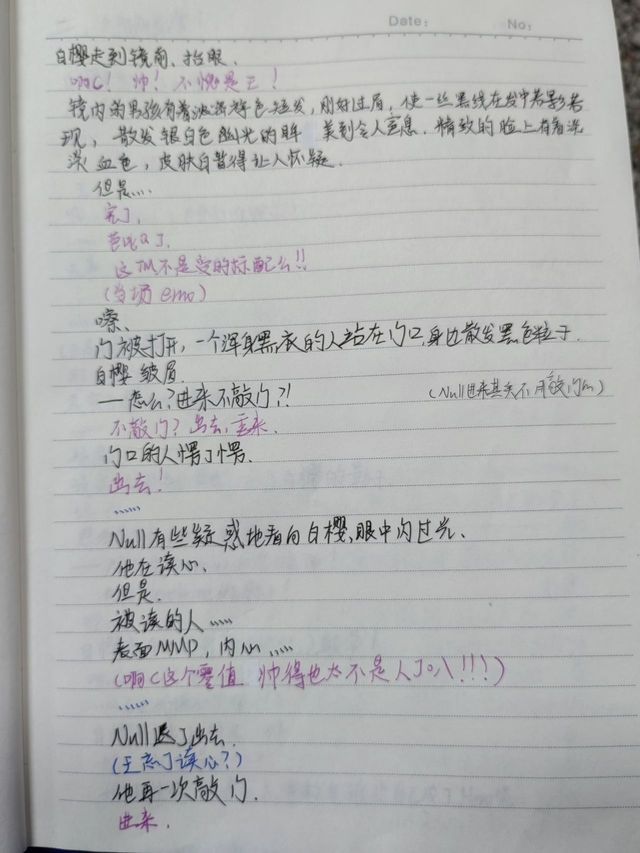 Date:
No:
白樱走到镜前、抬眼.
啊C! 帅! 不愧是王!
镜内的男孩有着浓密特色短发,刚好过眉,使一丝黑线在发中若影若
现,散发银白色幽光的眸 美到令人窒息.精致的脸上有着浅
淡血色,皮肤白皙得让人怀疑.
但是....
完了,
芭比Q了,
这TM不是受的标配么!!
(当场 emo)
嚓、
门被打开,一个浑身黑衣的人站在门口,身边散发黑色粒子.
白樱皱眉.
一怎么?进来不敲门?!
(Null进来其实不用敲门的)
不敲门? 出去,重来.
门口的人愣了愣.
出去!
......
Null有些疑惑地看向白樱,眼中闪过光、
他在读心.
但是.
被读的人.....
表面MMP,内心.....
(啊C这个零值 帅得也太不是人了叭!!!)
......
Null退了出去.
(王忘了读心?)
他再一次敲门.
进来.